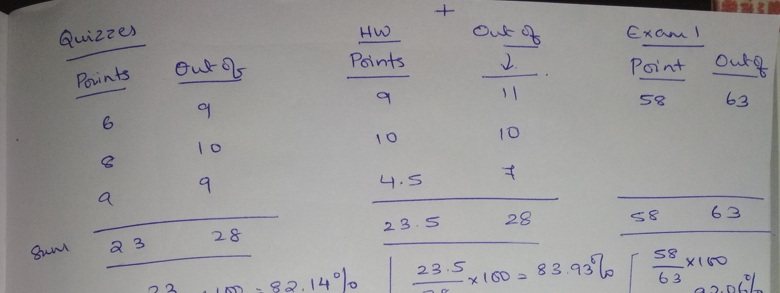 +
Quizzes HW Out of Exam 1
Points Out of Points ↓ Point Out of
6 9 9 11 58 63
8 10 10 10
9 9 4.5 7
Sum 23 28 23.5 28 58 63
23 x 100 = 82.14% 23.5/28 x 100 = 83.93% 58/63 x 100
92.06%